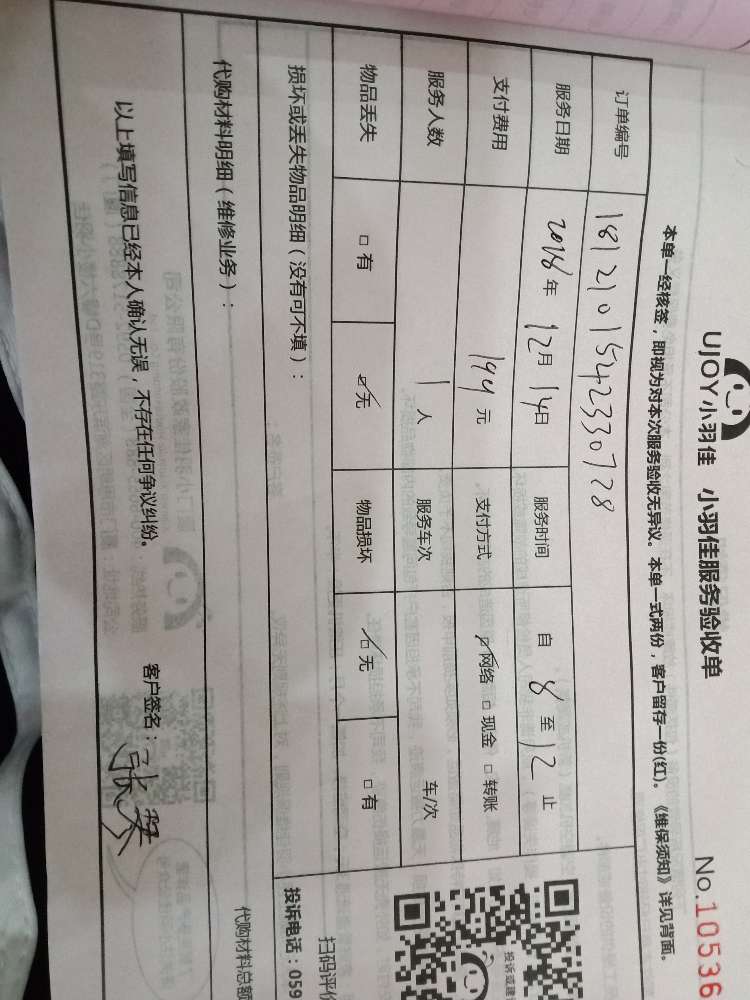 UJOY小羽佳 小羽佳服务验收单 No.10536
本单一经核签，即视为对本次服务验收无异议。本单一式两份，客户留存一份(红)。《维保须知》详见背面。
订单编号 1812101542330728
服务日期 2018年12月14日 服务时间 自 8 至 12 止
支付费用 194元 支付方式 ☑网络 □现金 □转账
服务人数 1人 服务车次 车/次
物品丢失 □有 ☑无 物品损坏 ☑无 □有
损坏或丢失物品明细（没有可不填）：
代购材料明细（维修业务）：
以上填写信息已经本人确认无误，不存在任何争议纠纷。
客户签名：张
投诉或建
扫码评价
投诉电话：059
代购材料总额